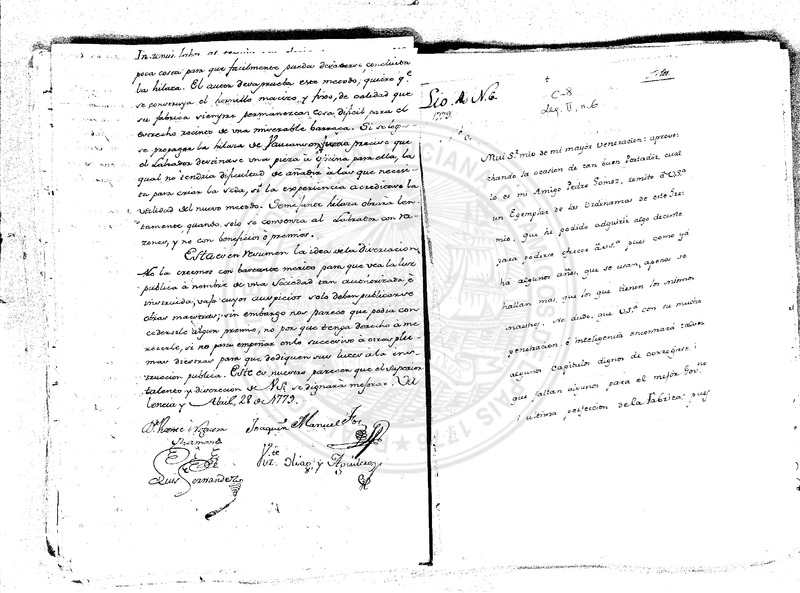 poca costa para que facilmente pueda deshacerse concluida
la hilaza. El autor desaprueba este metodo; quiere qᵉ
se construya el hornillo macizo, y fixo, de calidad que
su fabrica siempre permanezca; cosa dificil para el
estrecho recinto de una miserable barraca. Si se logra
se propagar la hilaza de Vaucanson, sera preciso que
el Labrador destinase una pieza à oficina para ella, la
qual no tendria dificultad de añadir à las que necesi-
ta para criar la seda, si la experiencia acreditare la
utilidad del nuevo metodo. Semejante hilaza obraria len-
tamente, quando solo se convenza al Labrador con ra-
zones, y no con beneficios ò premios.
Esta es en resumen la idea de la Disertacion
No la creemos con bastante merito para que vea la luz
publica à nombre de una Sociedad tan authorizada, è
instruida, vajo cuyos auspicios solo deben publicarse
obras maestras; sin embargo nos parece que podia con-
cedersele algun premio, no por que tenga derecho a me-
recerle, si no para empeñar en lo successivo à otras plu-
mas diestras para que dediquen sus luces à la ins-
truccion publica. Este es nuestro parecer que el superior
talento y discrecion de V.S. se dignarà mejorar. Va-
lencia y Abril, 28 de 1779.
Joaquin Manuel Fos
Luis Fernandez
Vte. Diaz y Aguilera
Lio. A N. 6
1779
C-8
Leg. II, n. 6
Mui S.ʳ mio de mi mayor veneracion: aprove-
chando la ocasion de tan buen Portador, cual
lo es mi Amigo Pedro Gomez, remito à V.Sᵃ
un Exemplar de las Ordinanzas de este Gre-
mio, que he podido adquirir algo decente
para poderse ofrecer à V.Sᵃ pues como yà
hà algunos años, que se usan, apenas se
hallan mas, que los que tienen los mismos
maestros. No dudo, que V.Sᵃ con su mucha
penetracion, è inteligencia encontrarà varios
algunos capitulos dignos de corregirse, i
que faltan algunos para el mejor Gov.ⁿᵒ
i ultima perfeccion de la Fabrica; pues